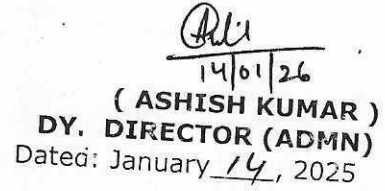 14/01/26
( ASHISH KUMAR )
DY. DIRECTOR (ADMN)
Dated: January 14, 2025